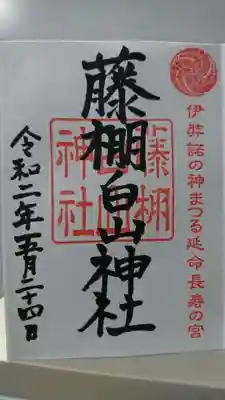 伊弉諾の神まつる延命長寿の宮
藤棚白山神社
藤棚
神社
令和二年五月二十四日